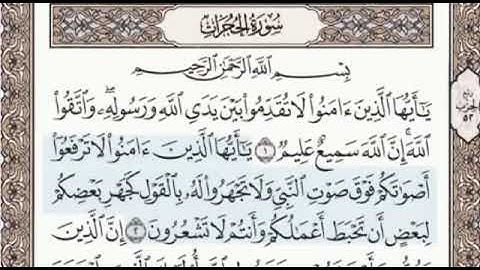 سُورَةُ الحُجُرَاتِ
بِسْمِ اللَّهِ الرَّحْمَٰنِ الرَّحِيمِ
يَٰٓأَيُّهَا الَّذِينَ ءَامَنُوا۟ لَا تُقَدِّمُوا۟ بَيْنَ يَدَىِ اللَّهِ وَرَسُولِهِۦ ۖ وَاتَّقُوا۟
اللَّهَ ۚ إِنَّ اللَّهَ سَمِيعٌ عَلِيمٌ ١ يَٰٓأَيُّهَا الَّذِينَ ءَامَنُوا۟ لَا تَرْفَعُوٓا۟
أَصْوَٰتَكُمْ فَوْقَ صَوْتِ النَّبِىِّ وَلَا تَجْهَرُوا۟ لَهُۥ بِالْقَوْلِ كَجَهْرِ بَعْضِكُمْ
لِبَعْضٍ أَن تَحْبَطَ أَعْمَٰلُكُمْ وَأَنتُمْ لَا تَشْعُرُونَ ٢ إِنَّ الَّذِينَ
ربع
الحزب
٥٢